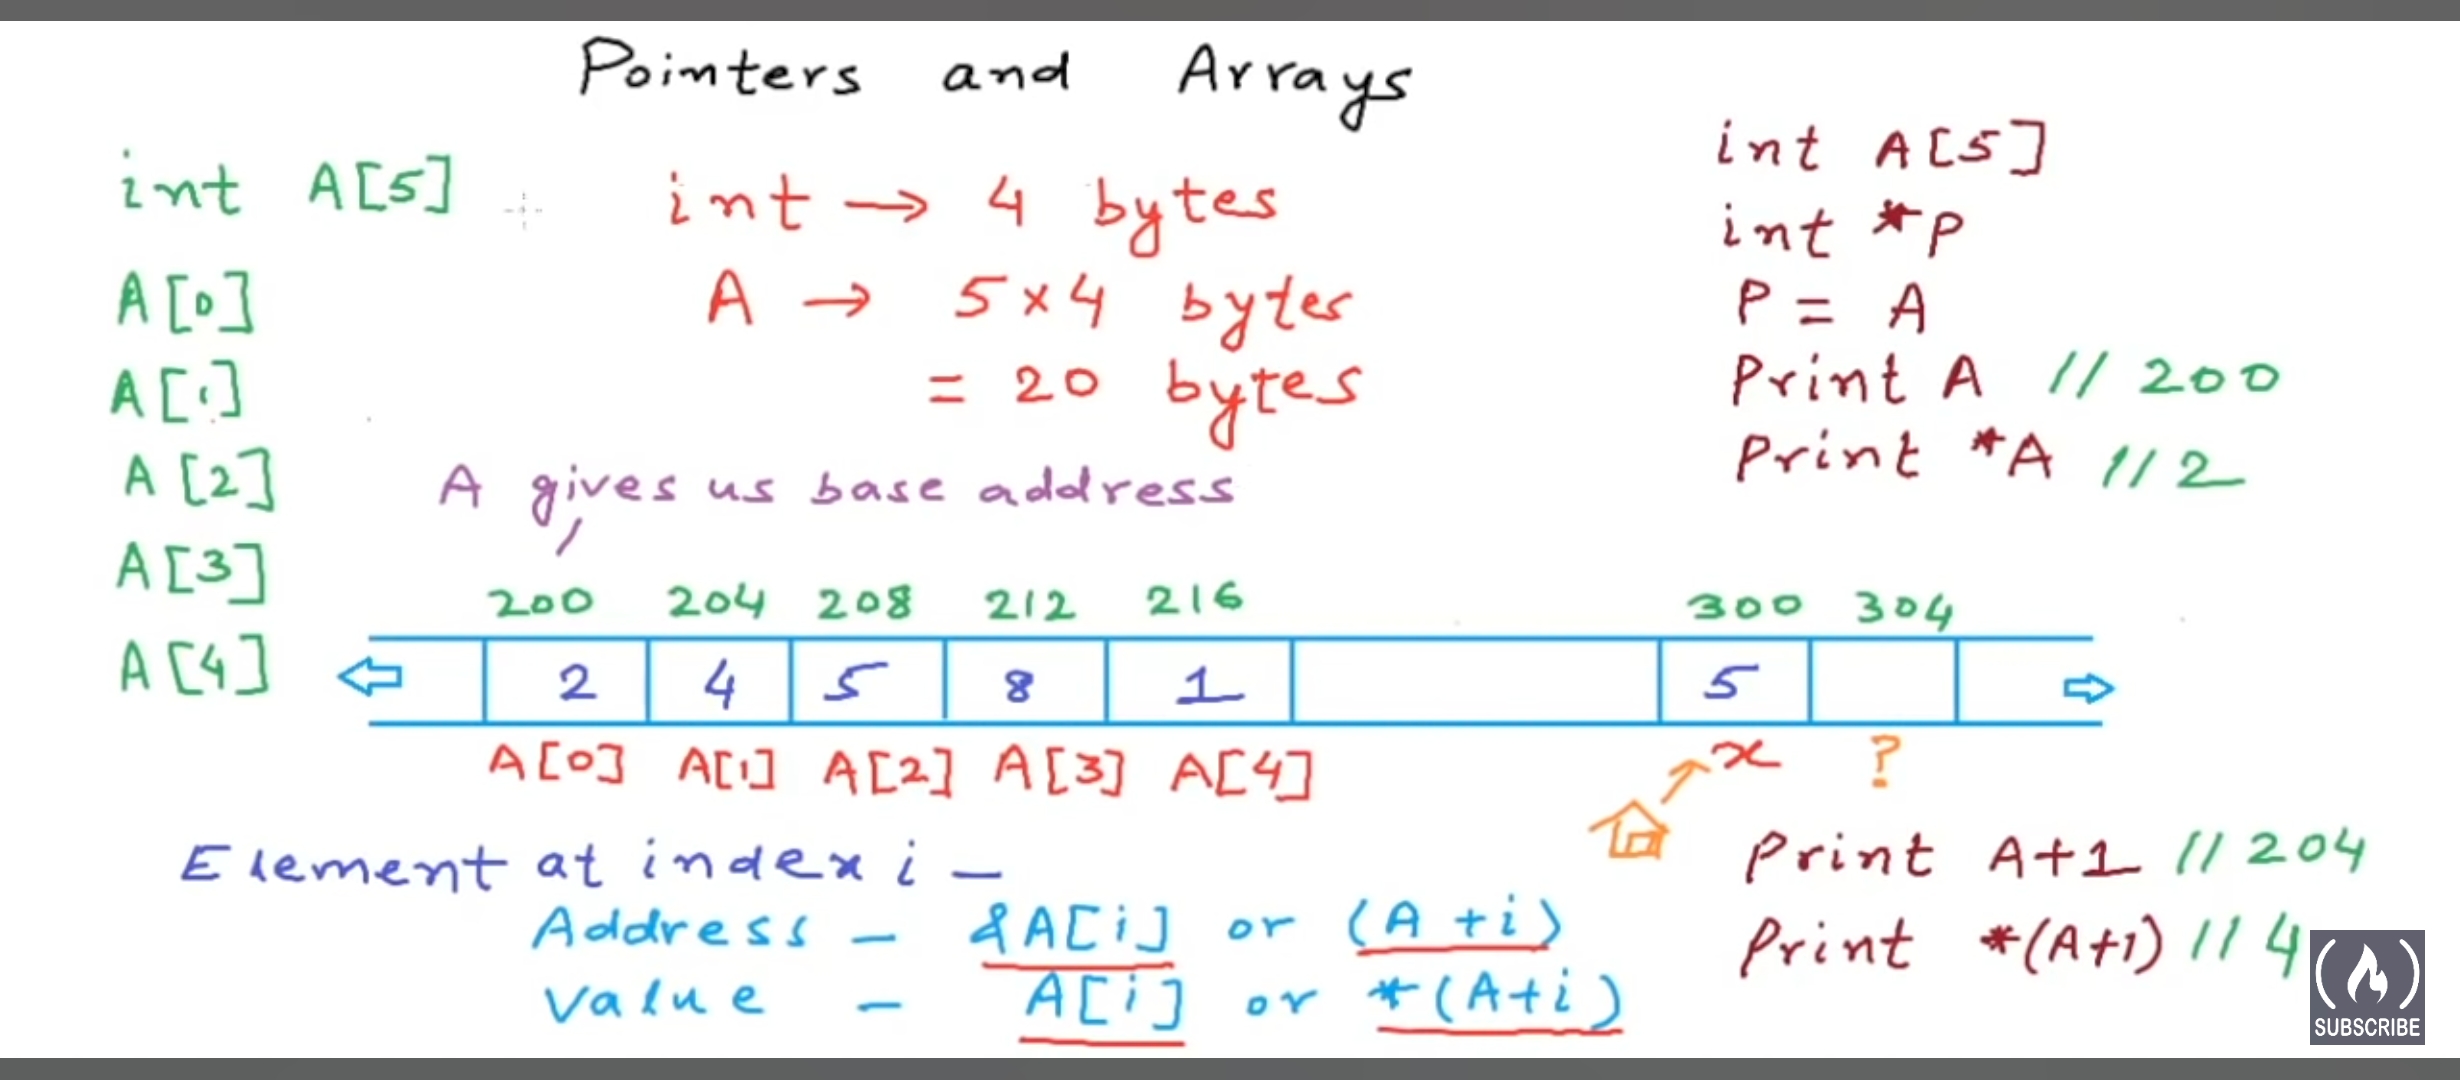 Pointers and Arrays
int A[5]
A[0]
A[1]
A[2]
A[3]
A[4]
int → 4 bytes
A → 5×4 bytes
= 20 bytes
A gives us base address
int A[5]
int *p
P = A
Print A // 200
Print *A // 2
200 204 208 212 216 300 304
2 4 5 8 1 5
A[0] A[1] A[2] A[3] A[4] x ?
Element at index i –
Address – &A[i] or (A+i)
Value – A[i] or *(A+i)
Print A+1 // 204
Print *(A+1) // 4
SUBSCRIBE